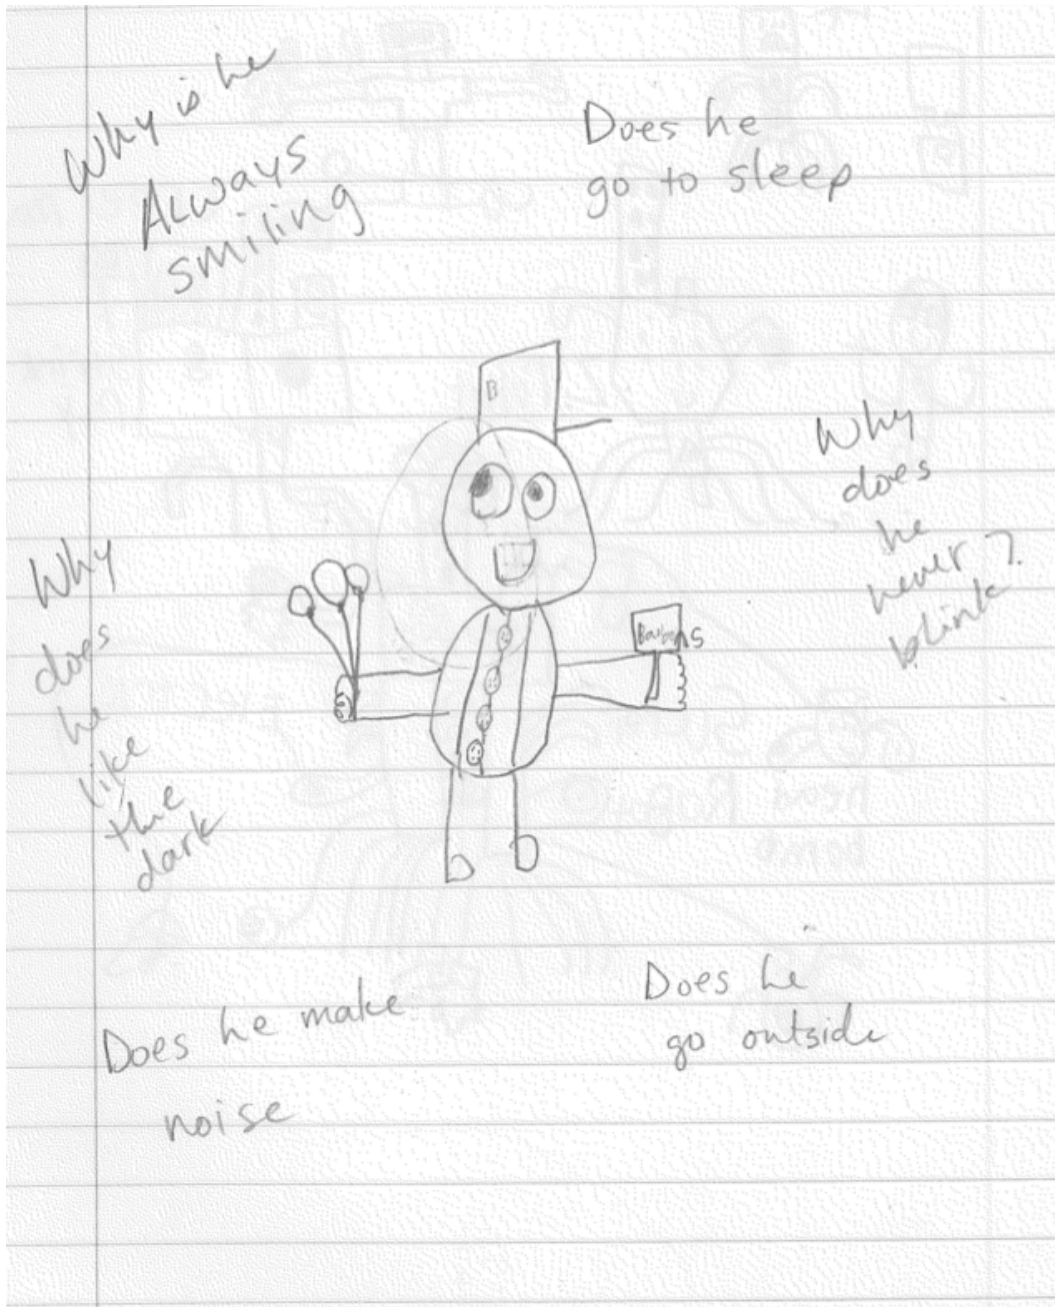 Why is he
Always
smiling
Does he
go to sleep
B
Why
does
he
never?
blink
Why
does
he
like
the
dark
Does he make
noise
Does he
go outside